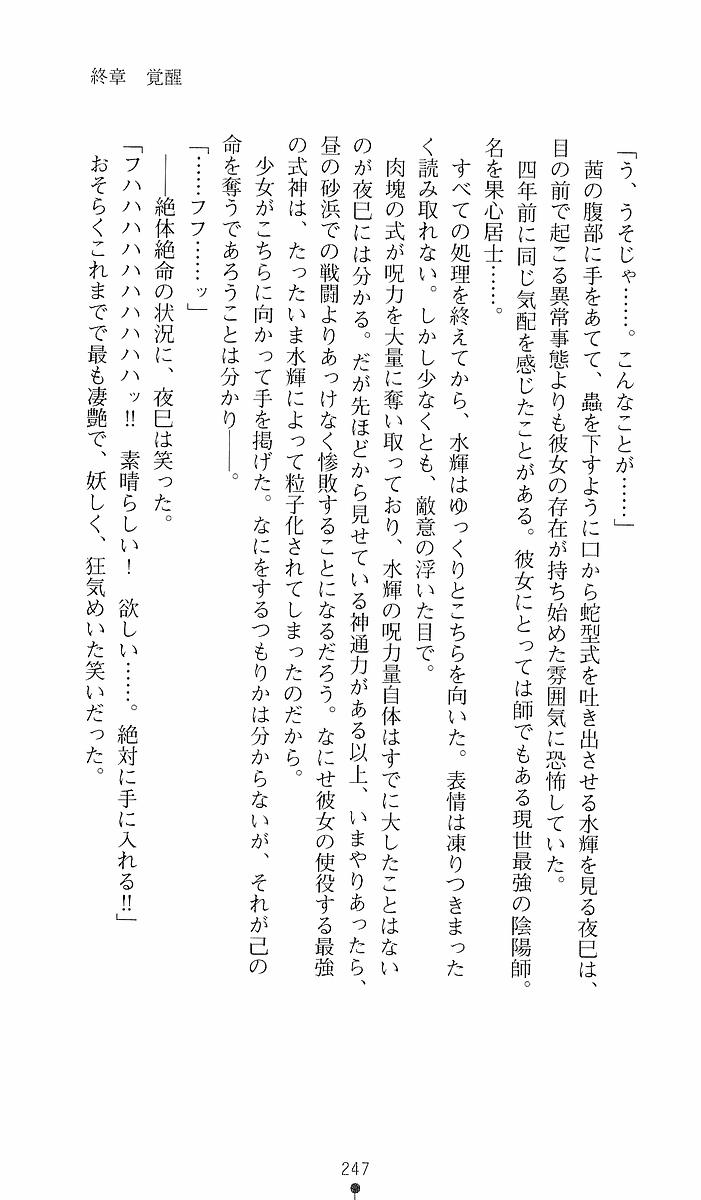 終章　覚醒
「う、うそじゃ……。こんなことが……」
　茜の腹部に手をあてて、蟲を下すように口から蛇型式を吐き出させる水輝を見る夜巳は、
目の前で起こる異常事態よりも彼女の存在が持ち始めた雰囲気に恐怖していた。
　四年前に同じ気配を感じたことがある。彼女にとっては師でもある現世最強の陰陽師。
名を果心居士……。
　すべての処理を終えてから、水輝はゆっくりとこちらを向いた。表情は凍りつきまった
く読み取れない。しかし少なくとも、敵意の浮いた目で。
　肉塊の式が呪力を大量に奪い取っており、水輝の呪力量自体はすでに大したことはない
のが夜巳には分かる。だが先ほどから見せている神通力がある以上、いまやりあったら、
昼の砂浜での戦闘よりあっけなく惨敗することになるだろう。なにせ彼女の使役する最強
の式神は、たったいま水輝によって粒子化されてしまったのだから。
　少女がこちらに向かって手を掲げた。なにをするつもりかは分からないが、それが己の
命を奪うであろうことは分かり――。
「……フフ……ッ」
　――絶体絶命の状況に、夜巳は笑った。
「フハハハハハハハハハハッ!!　素晴らしい！　欲しい……。絶対に手に入れる!!」
　おそらくこれまでで最も凄艶で、妖しく、狂気めいた笑いだった。
247